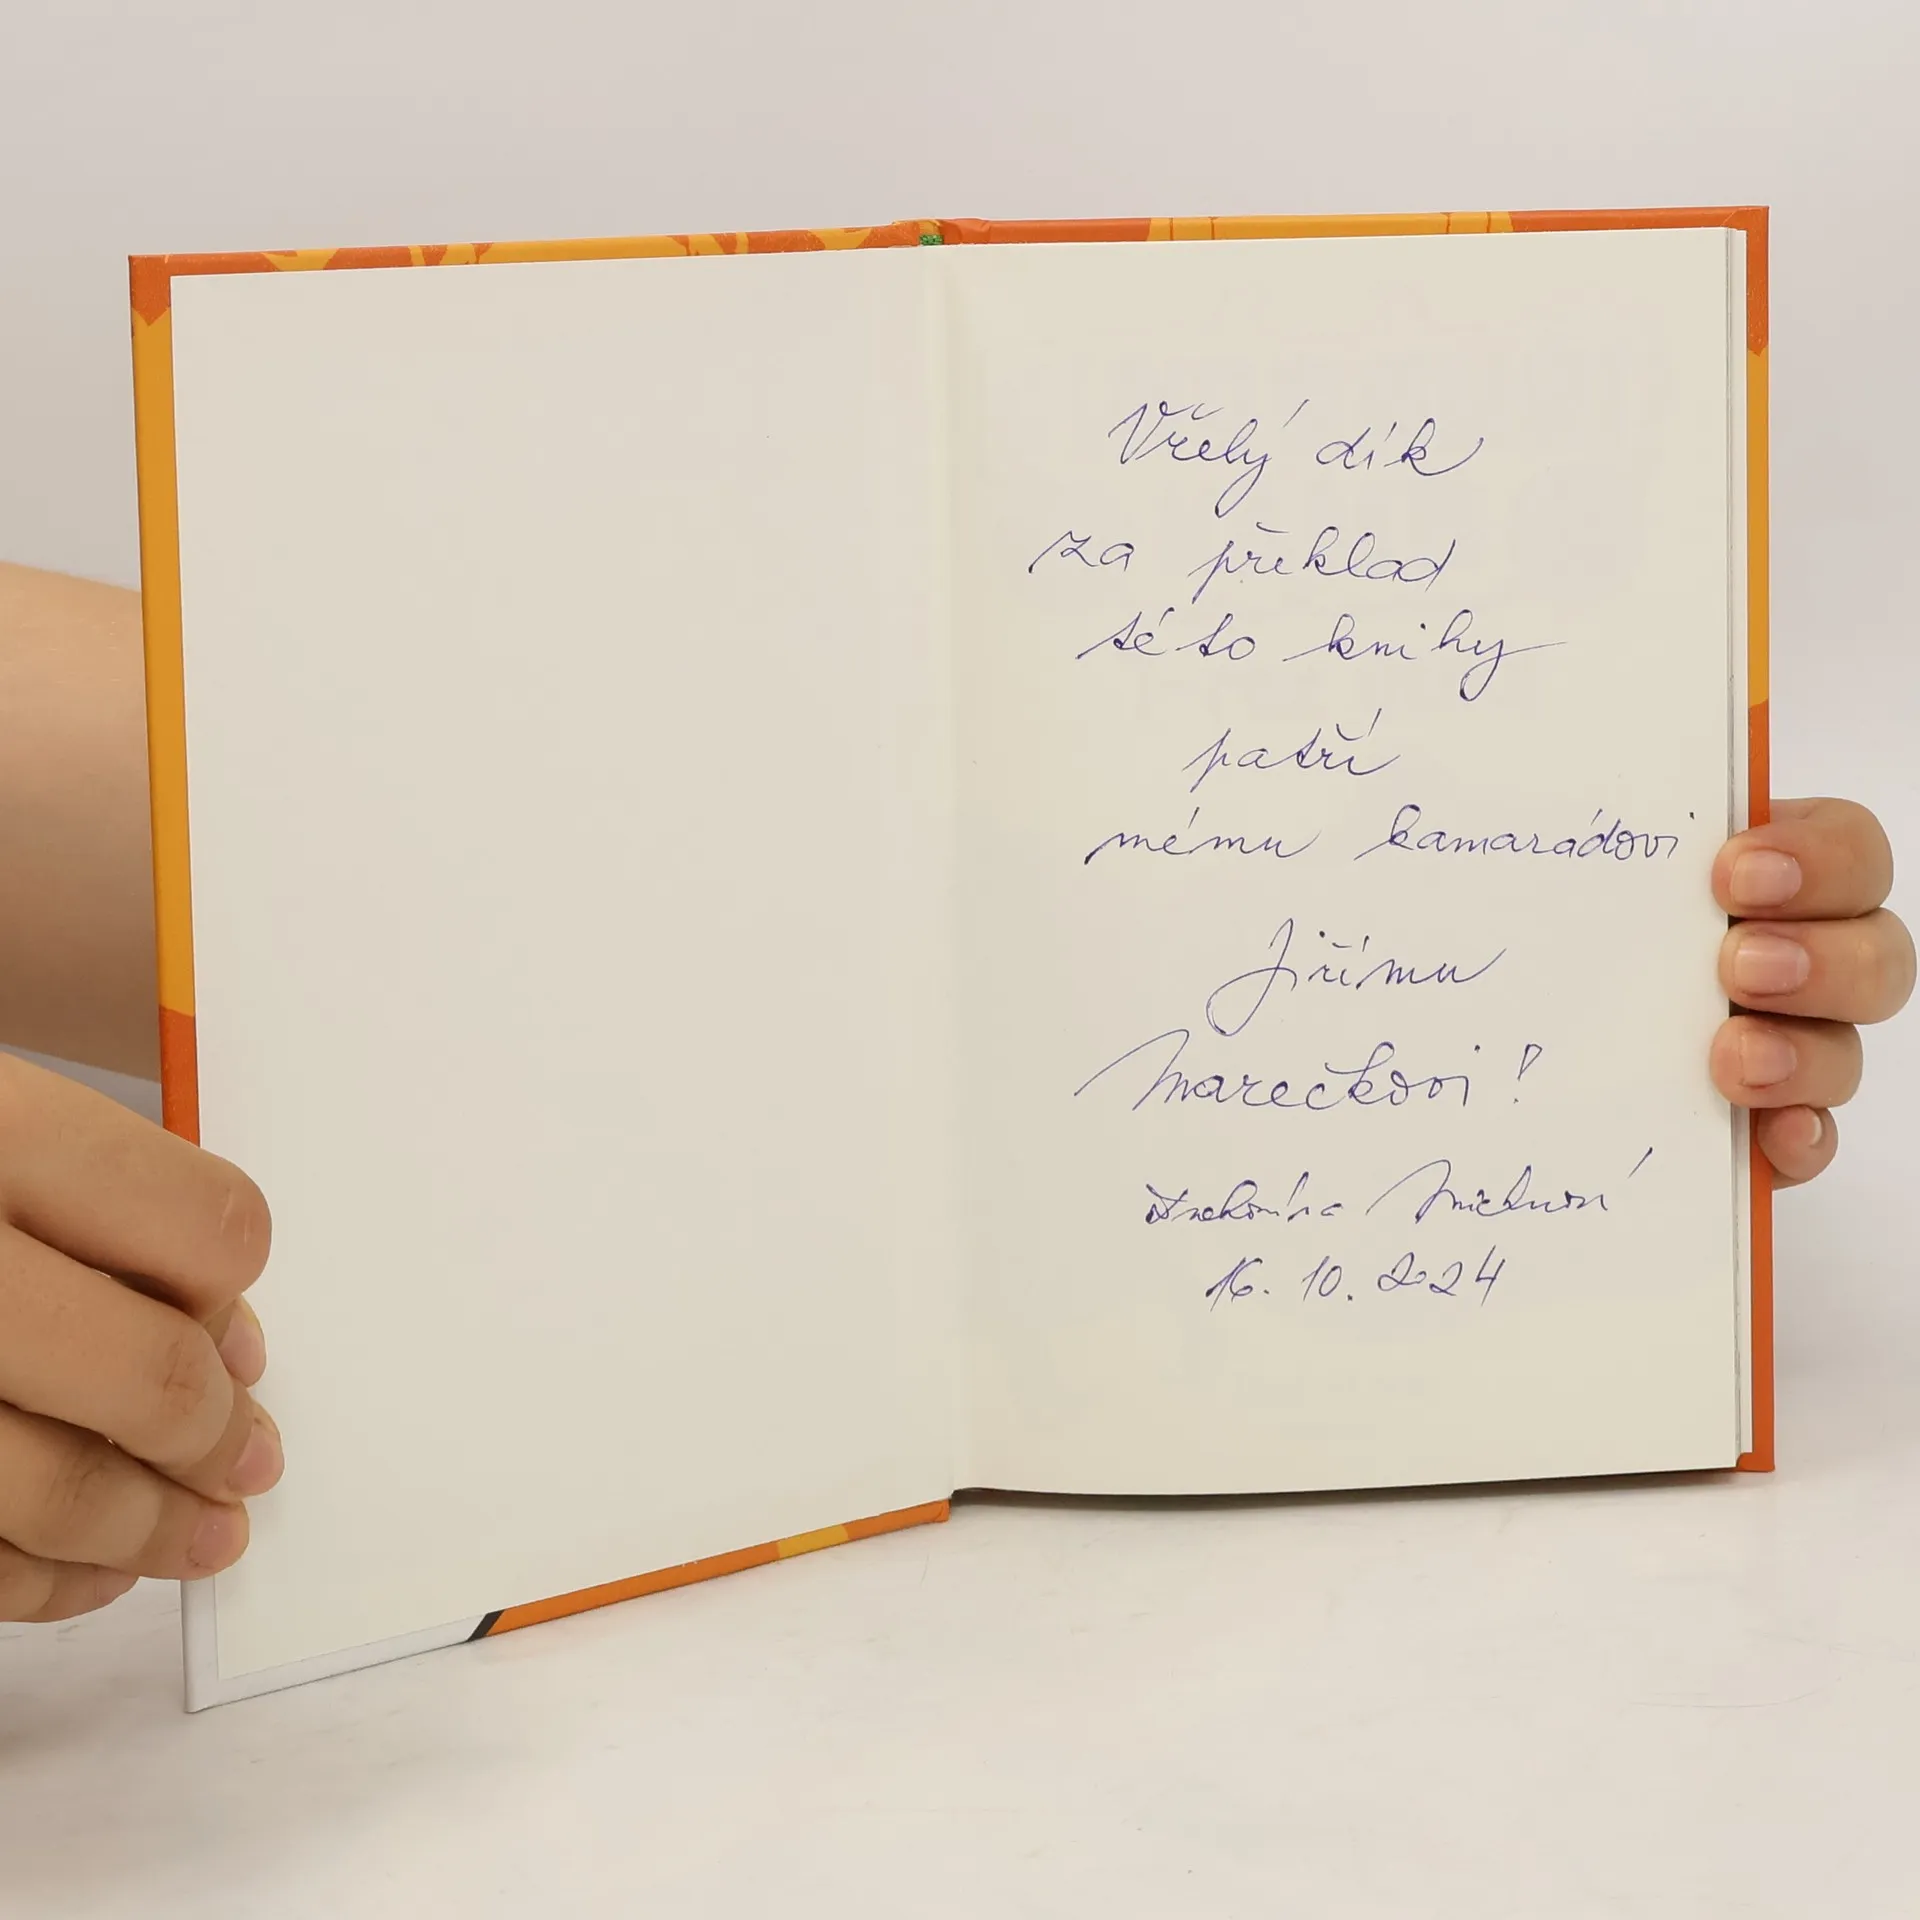 Vřelý dík
za překlad
této knihy
patří
mému kamarádovi
Jiřímu
Marečkovi!
16. 10. 2024